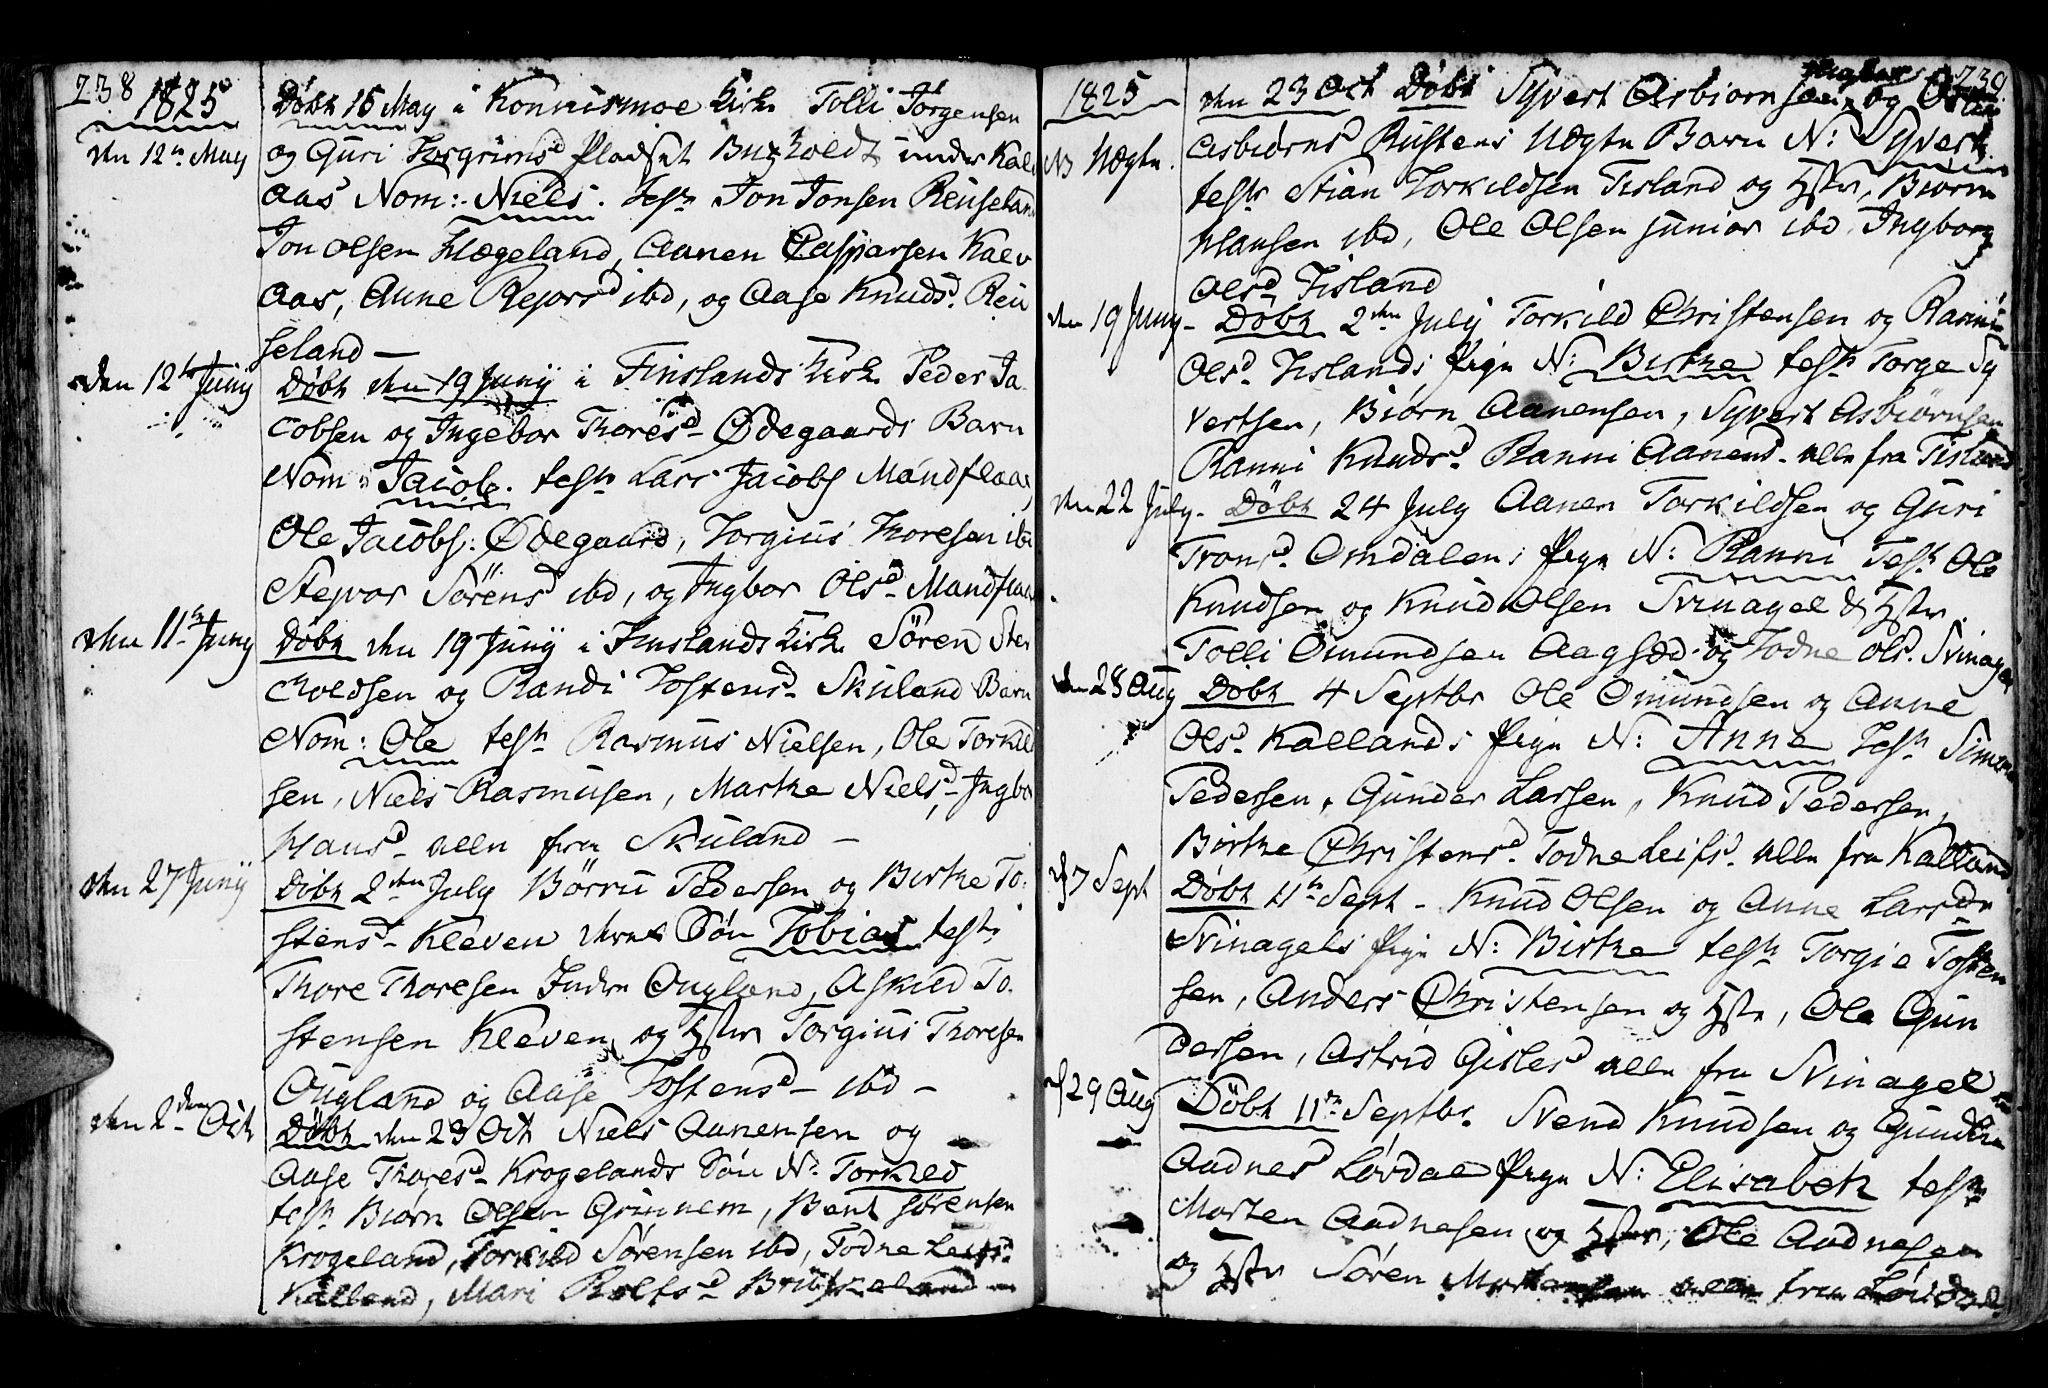 238 1825
den 12te May
Döbt 15 May i Konnismoe Kirk Tolli Jörgensen
og Guri Torgrimsd Pladset Buxholdt under Kal
aas Nom: Niels. Test Jon Jonsen Reuseland
Jon Olsen Hægeland, Aanen Casparsen Kalv
aas, Anne Rejersd ibd, og Aase Knudsd. Reu
seland —
den 12te Junij
Döbt den 19 Junij i Finslands Kirk Peder Ja
cobsen og Ingebor Thoresd Ødegaards Barn
Nom: Jacob. test Lars Jacobs Mandflaae,
Ole Jacobs: Ødegaard, Torgius Thoresen ibd
Stejvor Sörensd ibd, og Ingbor Olsd Mandflaae
den 11te Juny
Döbt den 19 Junij i Finslands Kirk Sören Ster
choldsen og Randi Tostensd Skuland Barn
Nom: Ole test Rasmus Nielsen, Ole Torkild
sen, Niels Rasmusen, Marthe Nielsd, Ingbor
Hansd alle fra Skuland —
den 27 Junij
Döbt 2den July Börru Pedersen og Birthe To:
stensd Kleven deres Sön Tobias test:
Thore Thoresen Indre Ougland, Askild To.
stensen Kleven og Hstr Torgius Thoresen
Ougland og Aase Tostensd ibd —
den 2den Oct
Döbt den 23 Oct Niels Aanensen og
Aase Thoresd Krogelands Sön N: Torkild
test Biørn Olsen Grinnem, Bent Sørensen
Krogeland, Torkild Sørensen ibd, Todne Leifsd
Kalland, Mari Rolfsd Bruskeland
239
1825
NB Uægte.
den 23 Oct Döbt Syvert Asbiornsen og
Asbiørns Rustens Uægte Barn N: Syvert
test Stian Torkildsen Tisland og Hstr, Biørn
Hansen ibd, Ole Olsen junior ibd, Ingborg
Olsd Tisland
den 19 Juny
Döbt 2den July Torkild Christensen og Ranni
Olsd. Tislands Pige N: Birthe test Torge Sy
vertsen, Biørn Aanensen, Syvert Asbiörnsen
Ranni Knudsd. Ranni Aanensd alle fra Tisland
den 22 July
Döbt 24 July Aanen Torkildsen og Guri
Tronsd. Omdalens Pige N: Ranni Test Ole
Knudsen og Knud Olsen Svinagel & Hstr.
Tolli Omundsen Aagsæd og Todne Ols. Svinagel
den 28 Aug
Döbt 4 Septbr Ole Omundsen og Anne
Olsd Kallands Pige N: Anne Test Simen
Pedersen, Gunder Larsen, Knud Pedersen,
Birthe Christensd. Todne Leifsd. alle fra Kalland
d 7 Sept
Döbt 11te Sept Knud Olsen og Anne Larsd
Svinagels Pige N: Birthe test Torgie Tosten
sen, Anders Christensen og Hstr, Ole Gun
dersen, Astrid Gislesd alle fra Svinagel
d 29 Aug
Döbt 11te Septbr. Svend Knudsen og Gunild
Audnesd Lövdal Pige N: Elisabeth test
Morten Audnesen og Hstr, Ole Audnesen
og Hstr Sören alle fra Lövdal